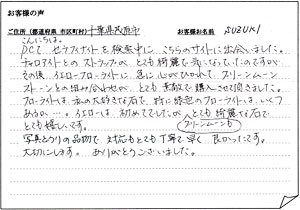 お客様の声
ご住所(都道府県 市区町村) 千葉県成田市 お客様お名前 SUZUKI
こんにちは。
PCで セラフィナイトを検索中に こちらのサイトに出会いました。
チャロアイトとのストラップが、とても綺麗で気になっていたのですが
その後、イエローフローライトに急に心がひかれて、スリーンムーン
ストーンとの組み合わせが、とても素敵で購入させて頂きました。
フローライトは私の大好きな石で、特に緑色のフローライトは、いくつ
あるか…。イエローは、初めてでしたがとても綺麗な石で
とても嬉しいです。 グリーンムーンも
写真どうりの品物で、対応もとても丁寧で早く 良かったです。
大切にします。 ありがとうございました。